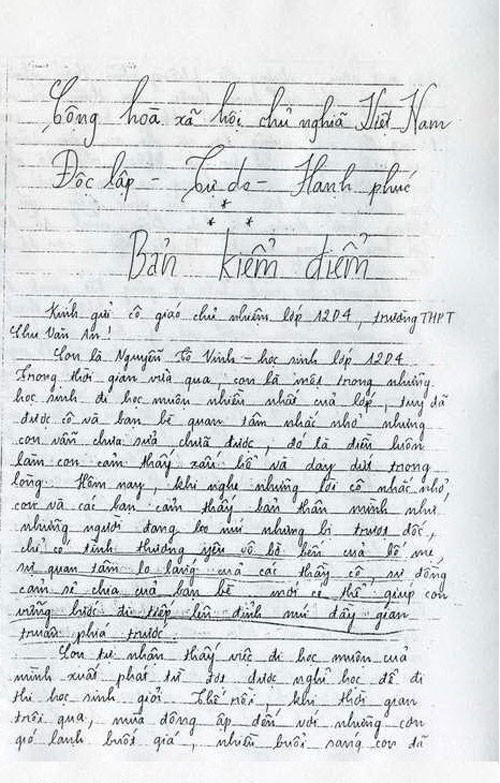 Cộng hoà xã hội chủ nghĩa Việt Nam
Độc lập - Tự do - Hạnh phúc
*
* *
Bản kiểm điểm
Kính gửi cô giáo chủ nhiệm lớp 12D4, trường THPT
Chu Văn An!
Con là Nguyễn Tô Vinh - học sinh lớp 12D4
Trong thời gian vừa qua, con là một trong những
học sinh đi học muộn nhiều nhất của lớp, tuy đã
được cô và bạn bè quan tâm nhắc nhở nhưng
con vẫn chưa sửa chữa được, đó là điều luôn
làm con cảm thấy xấu hổ và day dứt trong
lòng. Hôm nay, khi nghe những lời cô nhắc nhở,
con và các bạn cảm thấy bản thân mình như
những người đang leo núi nhưng bị trượt dốc,
chỉ có tình thương yêu vô bờ bến của bố mẹ,
sự quan tâm lo lắng của các thầy cô, sự đồng
cảm sẻ chia của bạn bè mới có thể giúp con
vững bước đi tiếp lên đỉnh núi đầy gian
truân phía trước.
Con tự nhận thấy việc đi học muộn của
mình xuất phát từ đợt được nghỉ học để đi
thi học sinh giỏi. Thế rồi, khi thời gian
trôi qua, mùa đông ập đến với những cơn
gió lạnh buốt giá, nhiều buổi sáng con đã